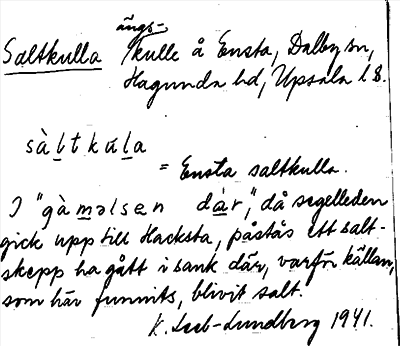 ängs-
Saltkulla /kulle å Ensta, Dalby sn,
Hagunda hd, Upsala l S.
sàl̲tkúl̲a
= Ensta saltkulla.
I "gàm̲əlsen dár", då segelleden
gick upp till Hacksta, påstås ett salt-
skepp ha gått i sank där, varför källan,
som här funnits, blivit salt.
K. Leeb-Lundberg 1941.